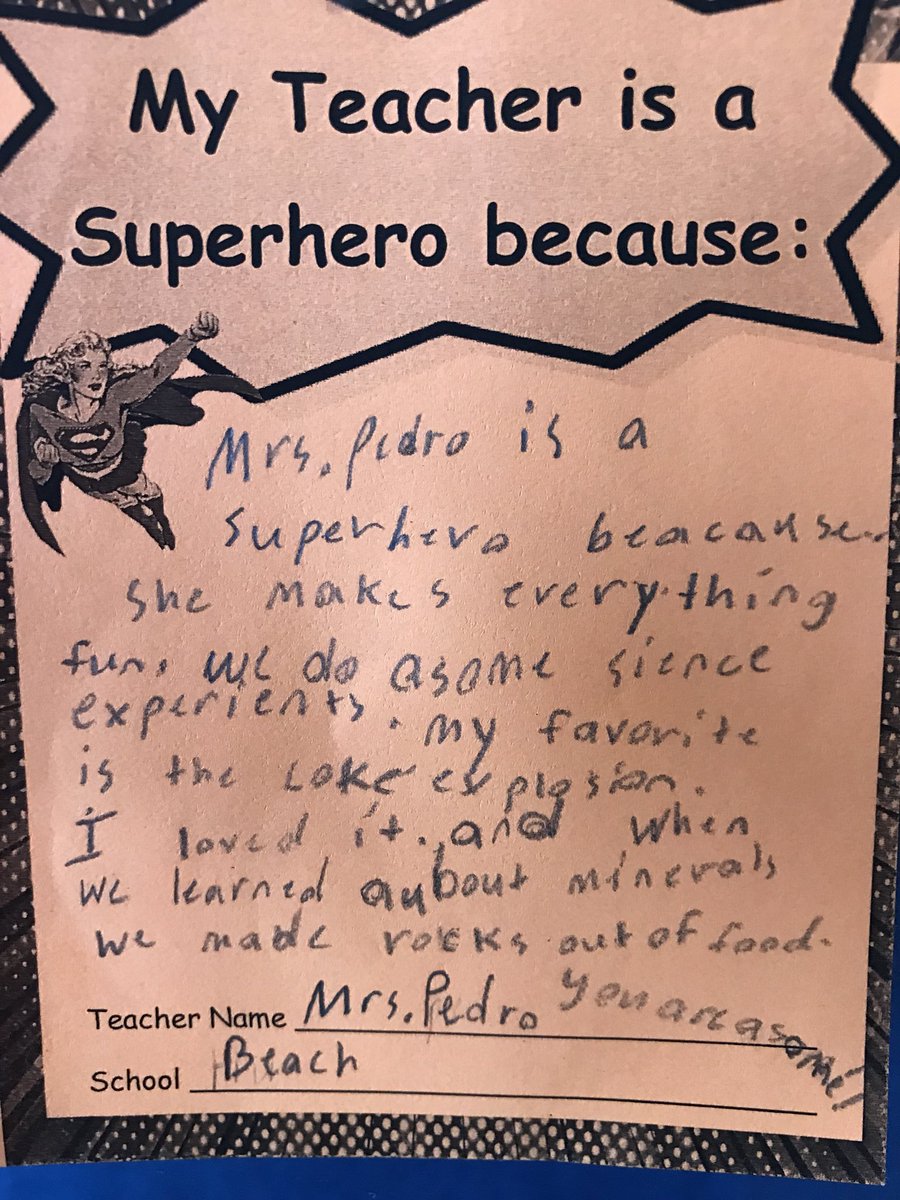 My Teacher is a
Superhero because:
Mrs. Pedro is a
superhero beacause
she makes everything
fun, we do asome sience
experients. my favorite
is the coke explosion.
I loved it. and when
we learned aubout minerals
we made rocks out of food.
Teacher Name Mrs. Pedro You are asome!
School Beach